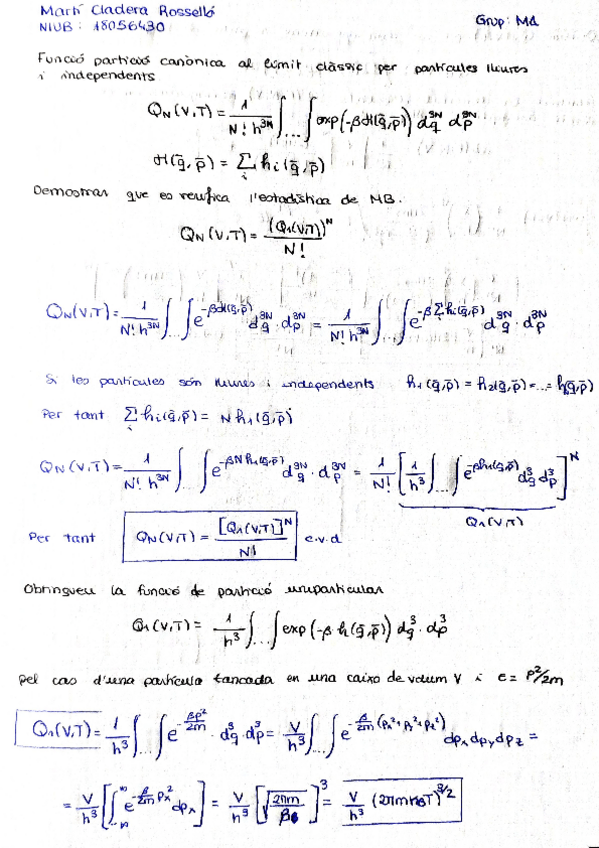 Martí Cladera Rosselló
NIUB: 18056430
Grup: M1
Funció partició canònica al límit clàssic per partícules lliures
i independents
Q_N(V,T) = 1/(N! h^{3N}) ∫...∫ exp(-βH(q̄,p̄)) dq^{3N} dp^{3N}
H(q̄,p̄) = Σ_i h_i(q̄,p̄)
Demostrar que es verifica l'estadística de MB.
Q_N(V,T) = (Q_1(V,T))^N / N!
Q_N(V,T) = 1/(N! h^{3N}) ∫...∫ e^{-βH(q̄,p̄)} dq^{3N} · dp^{3N} = 1/(N! h^{3N}) ∫...∫ e^{-βΣ_i h_i(q̄,p̄)} dq^{3N} · dp^{3N}
Si les partícules són lliures i independents h_1(q̄,p̄) = h_2(q̄,p̄) = ... = h(q̄,p̄)
Per tant Σ_i h_i(q̄,p̄) = N h_1(q̄,p̄)
Q_N(V,T) = 1/(N! h^{3N}) ∫...∫ e^{-βN h_1(q̄,p̄)} dq^{3N} · dp^{3N} = 1/N! [1/h^3 ∫...∫ e^{-βh_1(q̄,p̄)} dq^3 dp^3]^N
Q_1(V,T)
Per tant Q_N(V,T) = [Q_1(V,T)]^N / N! c.v.d
Obtingueu la funció de partició uniparticular
Q_1(V,T) = 1/h^3 ∫...∫ exp(-β h(q̄,p̄)) dq^3 · dp^3
pel cas d'una partícula tancada en una caixa de volum V i ε = p^2/2m
Q_1(V,T) = 1/h^3 ∫...∫ e^{-βp^2/2m} · dq^3 · dp^3 = V/h^3 ∫...∫ e^{-β/2m (p_x^2+p_y^2+p_z^2)} dp_x dp_y dp_z =
= V/h^3 [∫_{-∞}^{∞} e^{-β/2m p_x^2} dp_x] = V/h^3 [√(2πm/β)]^3 = V/h^3 (2πm k_B T)^{3/2}